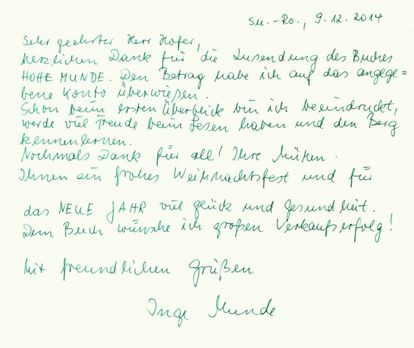 Su.-Ro., 9.12.2014
Sehr geehrter Herr Hofer,
herzlichen Dank für die Zusendung des Buches
HOHE MUNDE. Den Betrag habe ich auf das angege=
bene Konto überwiesen.
Schon beim ersten Überblick bin ich beeindruckt,
werde viel Freude beim Lesen haben und den Berg
kennenlernen.
Nochmals Dank für all! Ihre Mühen.
Ihnen ein frohes Weihnachtsfest und für
das NEUE JAHR viel Glück und Gesundheit.
Dem Buch wünsche ich großen Verkaufserfolg!
Mit freundlichen Grüßen
Inge Munde